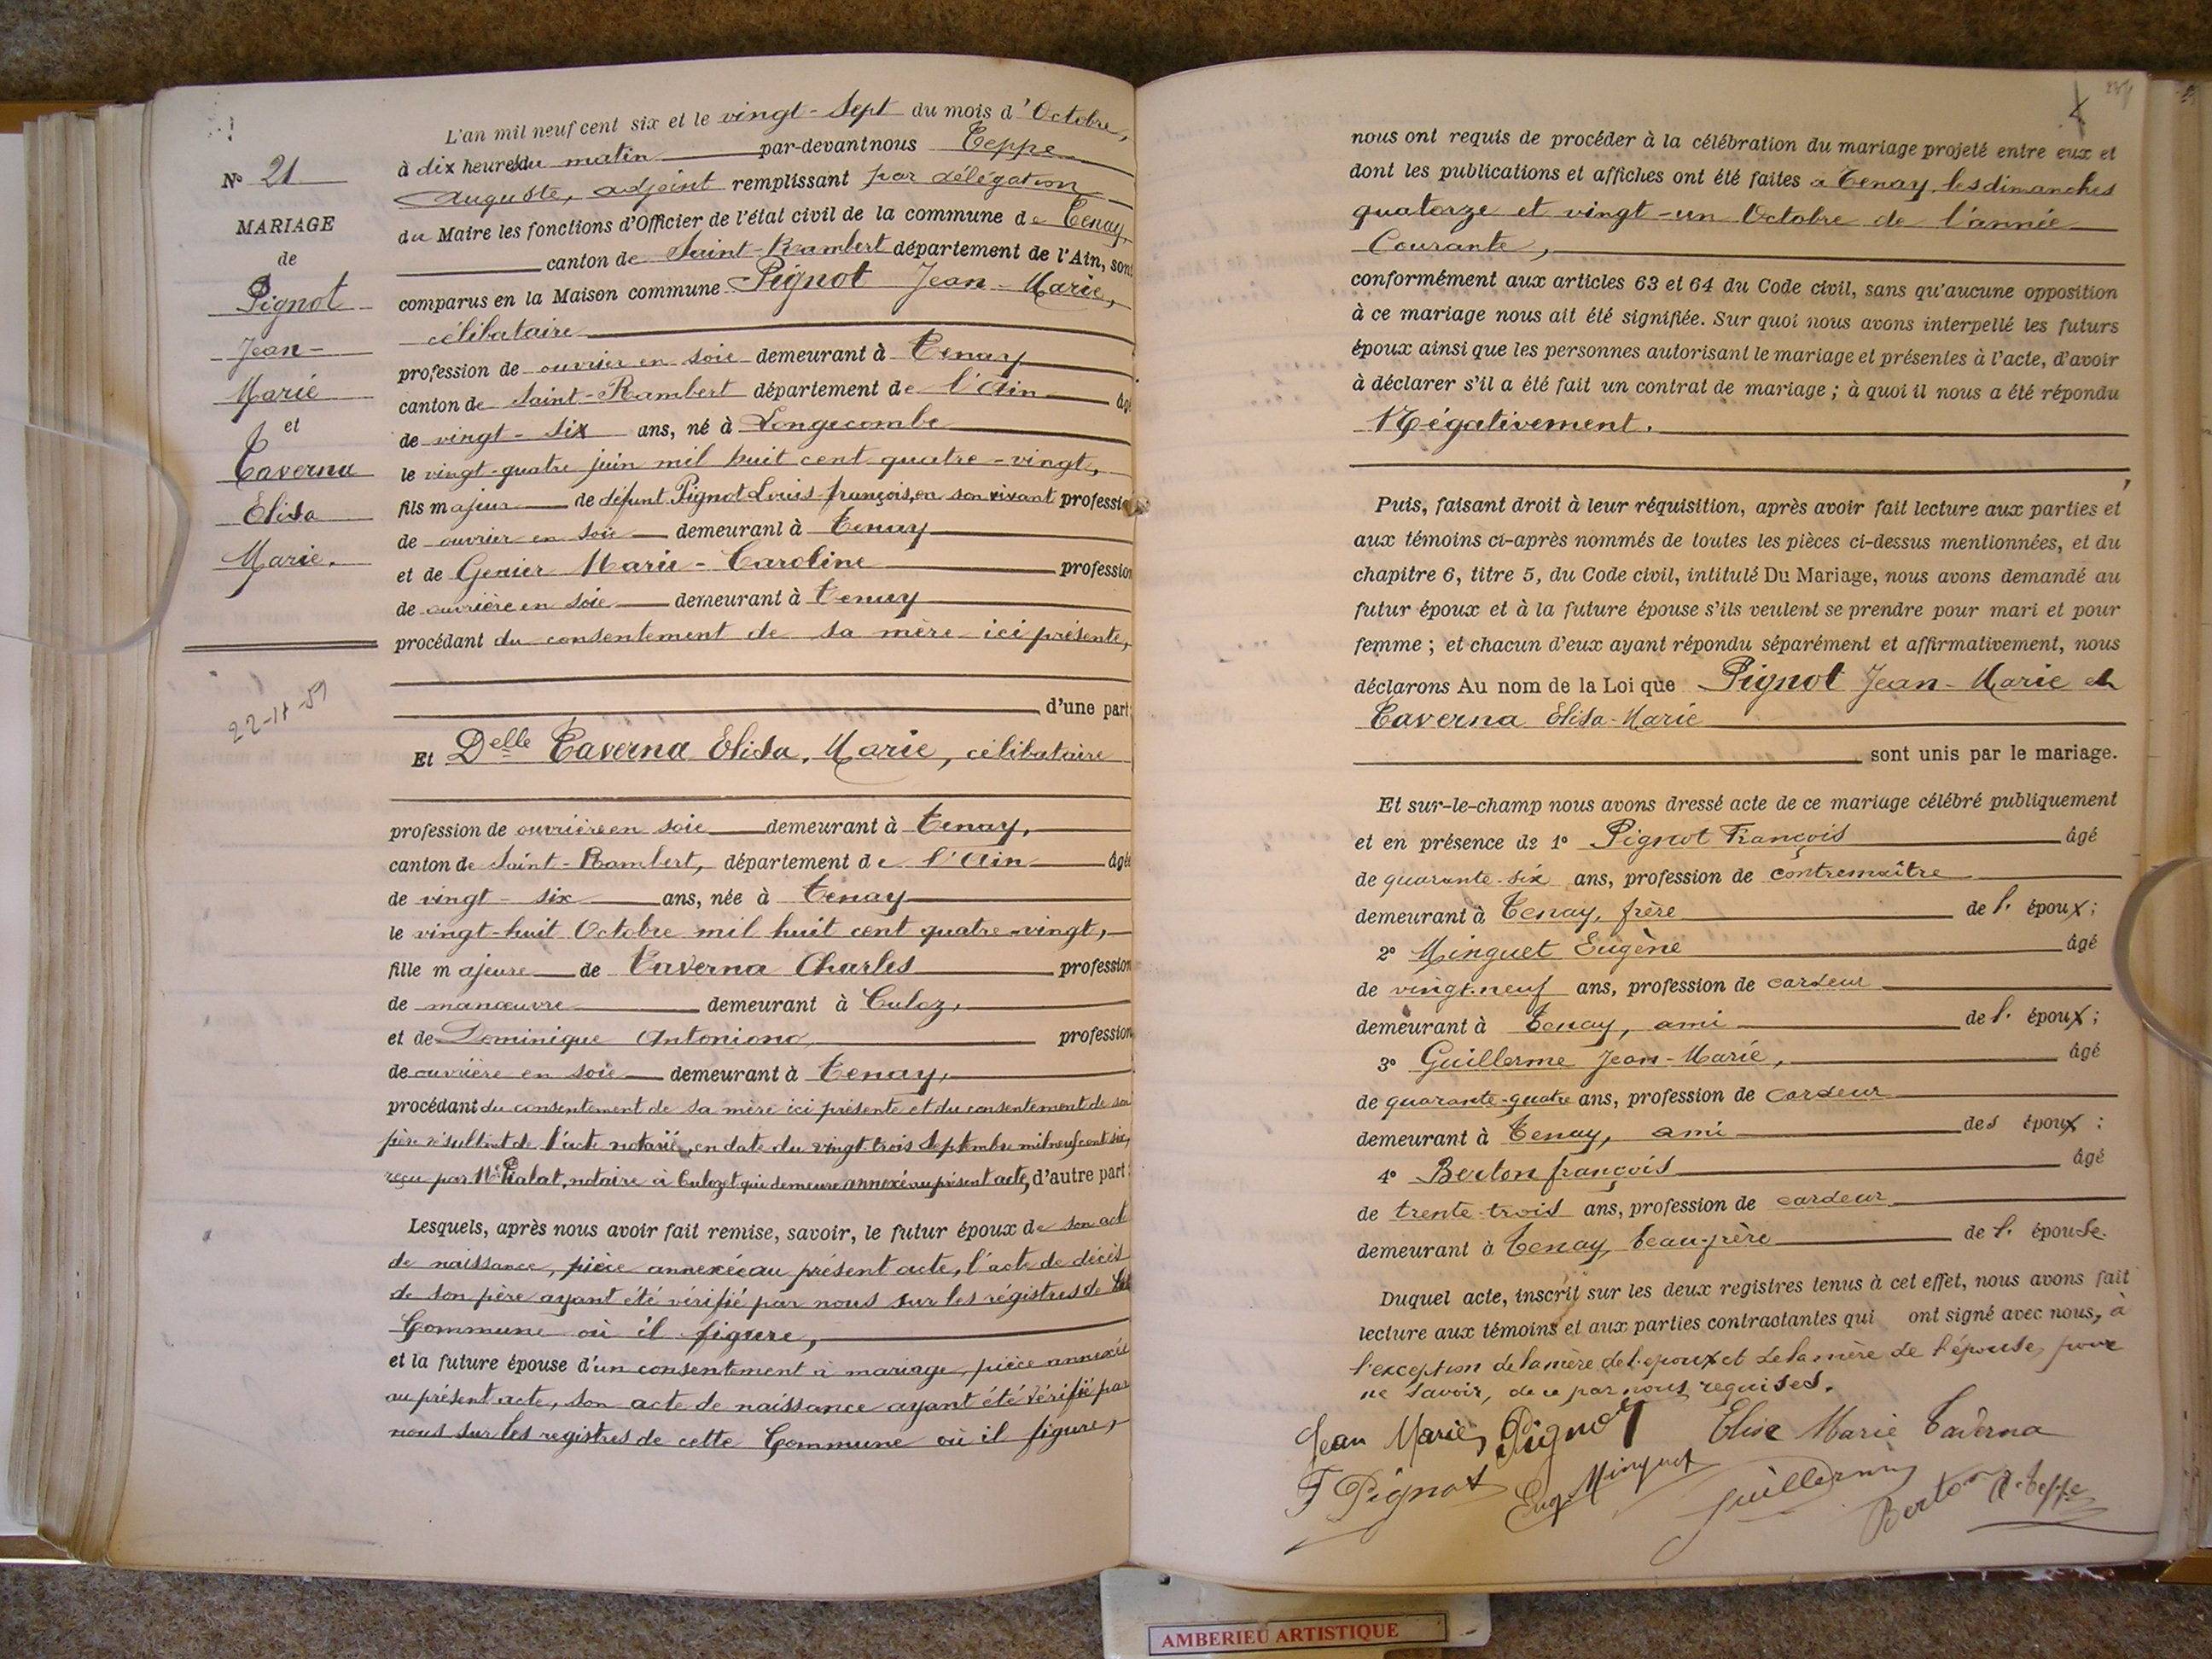 L'an mil neuf cent six et le vingt-Sept du mois d'Octobre,
à dix heures du matin par-devant nous Teppe
Auguste, adjoint remplissant par délégation
du Maire les fonctions d'Officier de l'état civil de la commune de Tenay,
canton de Saint-Rambert département de l'Ain, sont
comparus en la Maison commune Pignot Jean-Marie,
célibataire
profession de ouvrier en soie demeurant à Tenay
canton de Saint-Rambert département de l'Ain âgé
de vingt-six ans, né à Longecombe
le vingt-quatre juin mil huit cent quatre-vingt,
fils majeur de défunt Pignot Louis-françois, en son vivant profession
de ouvrier en soie demeurant à Tenay
et de Genier Marie-Caroline profession
de ouvrière en soie demeurant à Tenay
procédant du consentement de sa mère ici présente,
d'une part;
Et Delle Taverna Elisa, Marie, célibataire
profession de ouvrière en soie demeurant à Tenay,
canton de Saint-Rambert, département de l'Ain âgée
de vingt-six ans, née à Tenay
le vingt-huit Octobre mil huit cent quatre-vingt,
fille majeure de Taverna Charles profession
de manœuvre demeurant à Culoz,
et de Dominique Antoniona profession
de ouvrière en soie demeurant à Tenay,
procédant du consentement de sa mère ici présente et du consentement de son
père résultant de l'acte notarié, en date du vingt trois Septembre mil neuf cent six,
reçu par Me Pialat, notaire à Culoz et qui demeure annexé au présent acte, d'autre part:
Lesquels, après nous avoir fait remise, savoir, le futur époux de son act
de naissance, pièce annexée au présent acte, l'acte de décès
de son père ayant été vérifié par nous sur les régistres de
Commune où il figure,
et la future épouse d'un consentement à mariage, pièce annexée
au présent acte, son acte de naissance ayant été vérifié par
nous sur les registres de cette Commune où il figure,
N° 21
MARIAGE
de
Pignot
Jean-
Marie
et
Taverna
Elisa
Marie.
nous ont requis de procéder à la célébration du mariage projeté entre eux et
dont les publications et affiches ont été faites à Tenay, les dimanches
quatorze et vingt-un Octobre de l'année
Courante,
conformément aux articles 63 et 64 du Code civil, sans qu'aucune opposition
à ce mariage nous ait été signifiée. Sur quoi nous avons interpellé les futurs
époux ainsi que les personnes autorisant le mariage et présentes à l'acte, d'avoir
à déclarer s'il a été fait un contrat de mariage; à quoi il nous a été répondu
Négativement.
Puis, faisant droit à leur réquisition, après avoir fait lecture aux parties et
aux témoins ci-après nommés de toutes les pièces ci-dessus mentionnées, et du
chapitre 6, titre 5, du Code civil, intitulé Du Mariage, nous avons demandé au
futur époux et à la future épouse s'ils veulent se prendre pour mari et pour
femme; et chacun d'eux ayant répondu séparément et affirmativement, nous
déclarons Au nom de la Loi que Pignot Jean-Marie et
Taverna Elisa-Marie
sont unis par le mariage.
Et sur-le-champ nous avons dressé acte de ce mariage célébré publiquement
et en présence de 1° Pignot François âgé
de quarante-six ans, profession de contremaître
demeurant à Tenay, frère de l' époux;
2° Minguet Eugène âgé
de vingt-neuf ans, profession de cardeur
demeurant à Tenay, ami de l' époux;
3° Guillerme Jean-Marie, âgé
de quarante-quatre ans, profession de cardeur
demeurant à Tenay, ami des époux;
4° Berton françois âgé
de trente-trois ans, profession de cardeur
demeurant à Tenay, beau-frère de l' épouse.
Duquel acte, inscrit sur les deux registres tenus à cet effet, nous avons fait
lecture aux témoins et aux parties contractantes qui ont signé avec nous, à
l'exception de la mère de l'époux et de la mère de l'épouse, pour
ne savoir, de ce par nous requises.
Jean Marie, Pignot Elise Marie Taverna
F Pignot Eug Minguet Guillerme Berton A. Teppe
AMBERIEU ARTISTIQUE